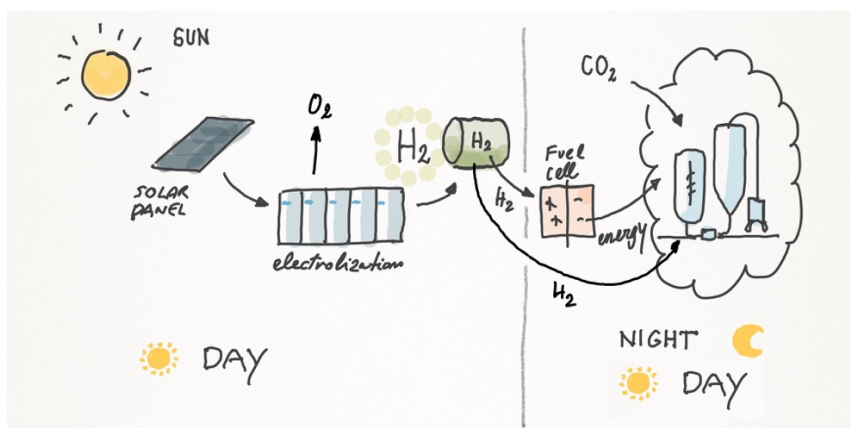 SUN
SOLAR
PANEL
O₂
electrolization
H₂
H₂
H₂
Fuel
cell
energy
H₂
CO₂
DAY
NIGHT
DAY